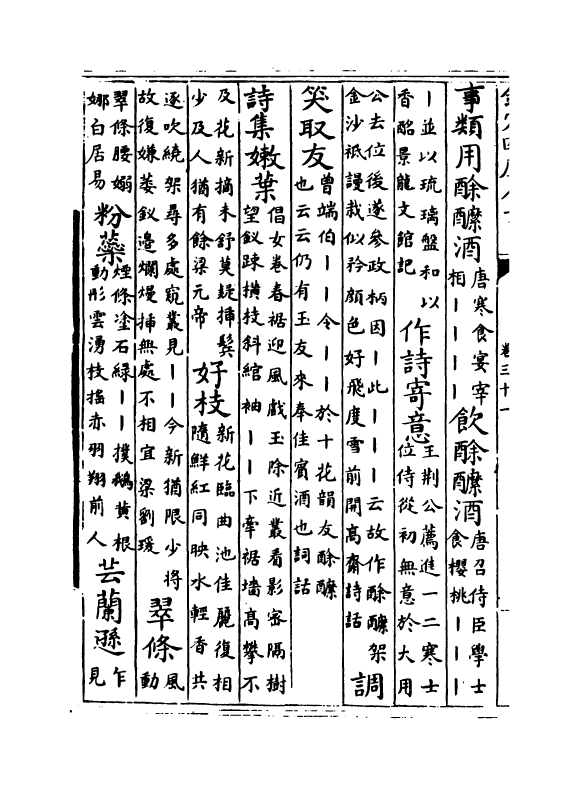 卷三十一
事類用酴醿酒唐寒食宴宰相丨丨丨丨飲酴醿酒唐召侍臣學士食櫻桃丨丨丨
丨並以琉璃盤和以香酩景龍文館記作詩寄意王荆公薦進一二寒士位侍從初無意於大用
公去位後遂参政柄因丨此丨丨丨云故作酴醿架金沙祗謾栽似矜顔色好飛度雪前開高齋詩話調
笑取友曾端伯丨丨令丨丨於十花韻友酴醿也云云仍有玉友來奉佳賓酒也詞話
詩集嫩葉倡女卷春裾迎風戲玉除近叢看影密隔樹望釵踈横枝斜綰袖丨丨下牽裾墻高攀不
及花新摘未舒莫疑揷鬂少及人猶有餘梁元帝好枝新花臨曲池佳麗復相隨鮮紅同映水輕香共
逐吹繞架尋多處窺叢見丨丨今新猶限少將故復嫌萎釵邉爛熳揷無處不相宜梁劉瑗翠條風動
翠條腰嫋娜白居易粉蘂煙條塗石緑丨丨撲鵝黄根動彤雲湧枝摇赤羽翔前人芸蘭遜乍見